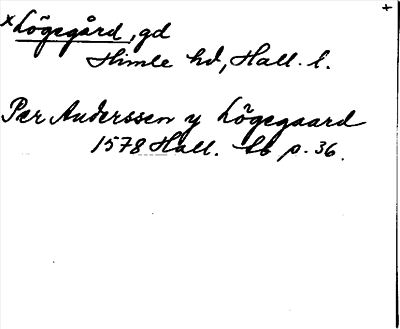 x Lögegård, gd +
Himle hd, Hall. l.
Per Anderssen y Lögegaard
1578 Hall. Lb p. 36.